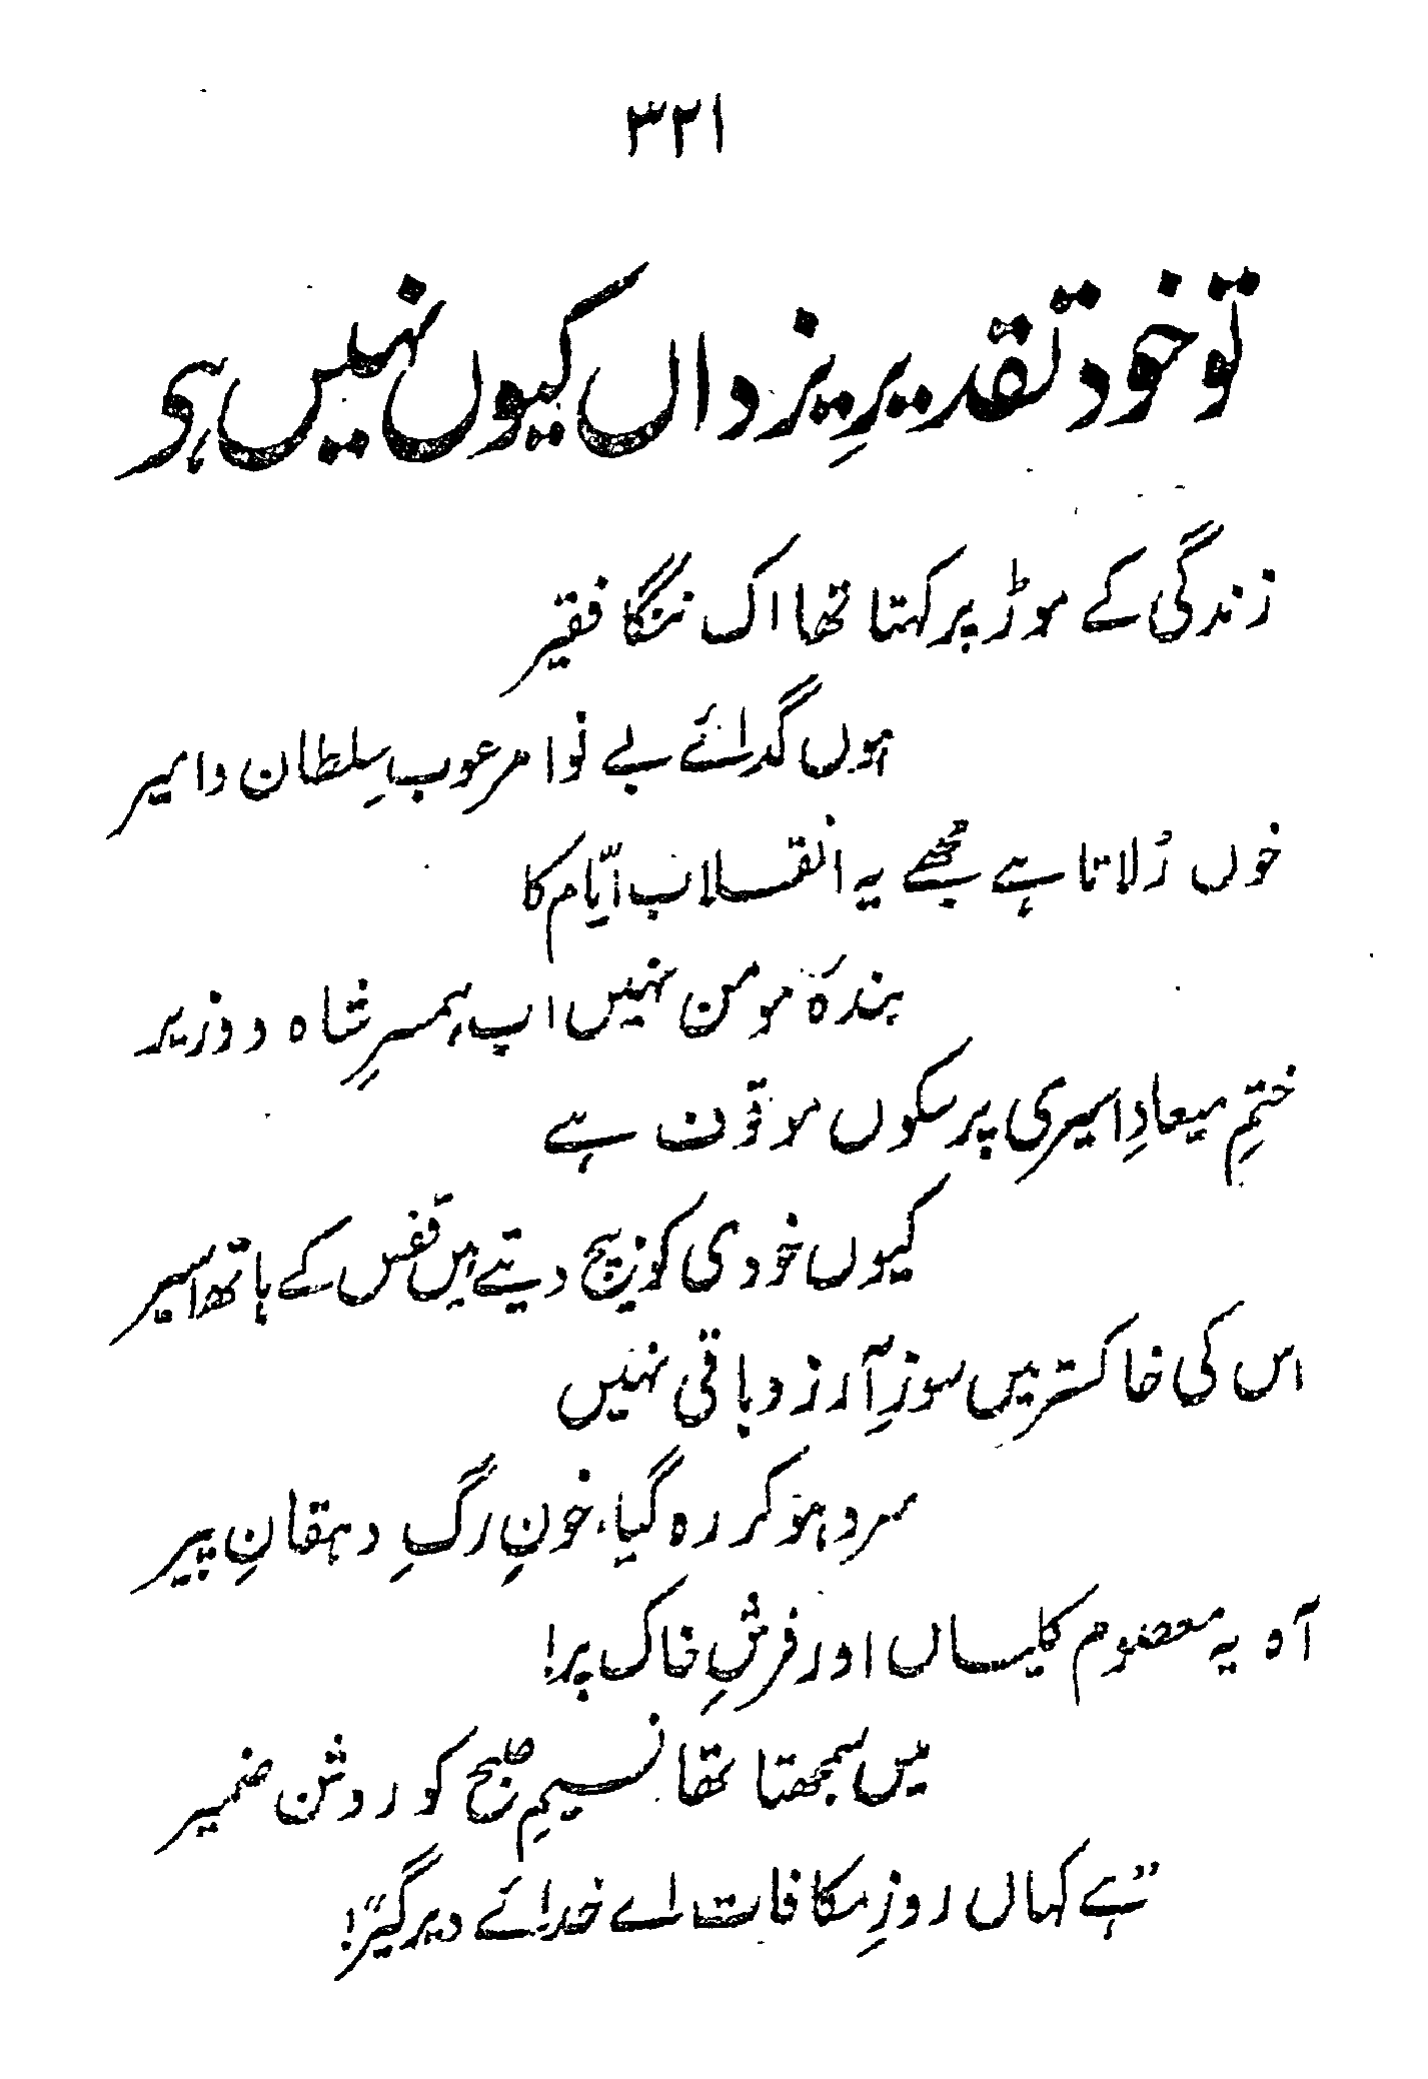 ۳۲۱
تو خود تقدیرِ یزداں کیوں نہیں ہی
زندگی کے موڑ پر کہتا تھا اک ننگا فقیر
ہوں گدائے بے نوا مرعوبِ سلطان و امیر
خوں رُلاتا ہے مُجھے یہ انقلاب ایّام کا
بندۂ مومن نہیں اب ہمسرِ شاہ و وزیر
ختمِ میعادِ اسیری پر سکوں موقوف ہے
کیوں خودی کو بیچ دیتے ہیں قفس کے ہاتھ اسیر
اس کی خاکستر میں سوزِ آرزو باقی نہیں
سرد ہو کر رہ گیا، خونِ رگِ دہقانِ پیر
آہ یہ معصوم کلیاں اور فرشِ خاک پر!
میں سمجھتا تھا نسیمِ صبح کو روشن ضمیر
"ہے کہاں روزِ مکافات اے خدائے دیر گیر"!